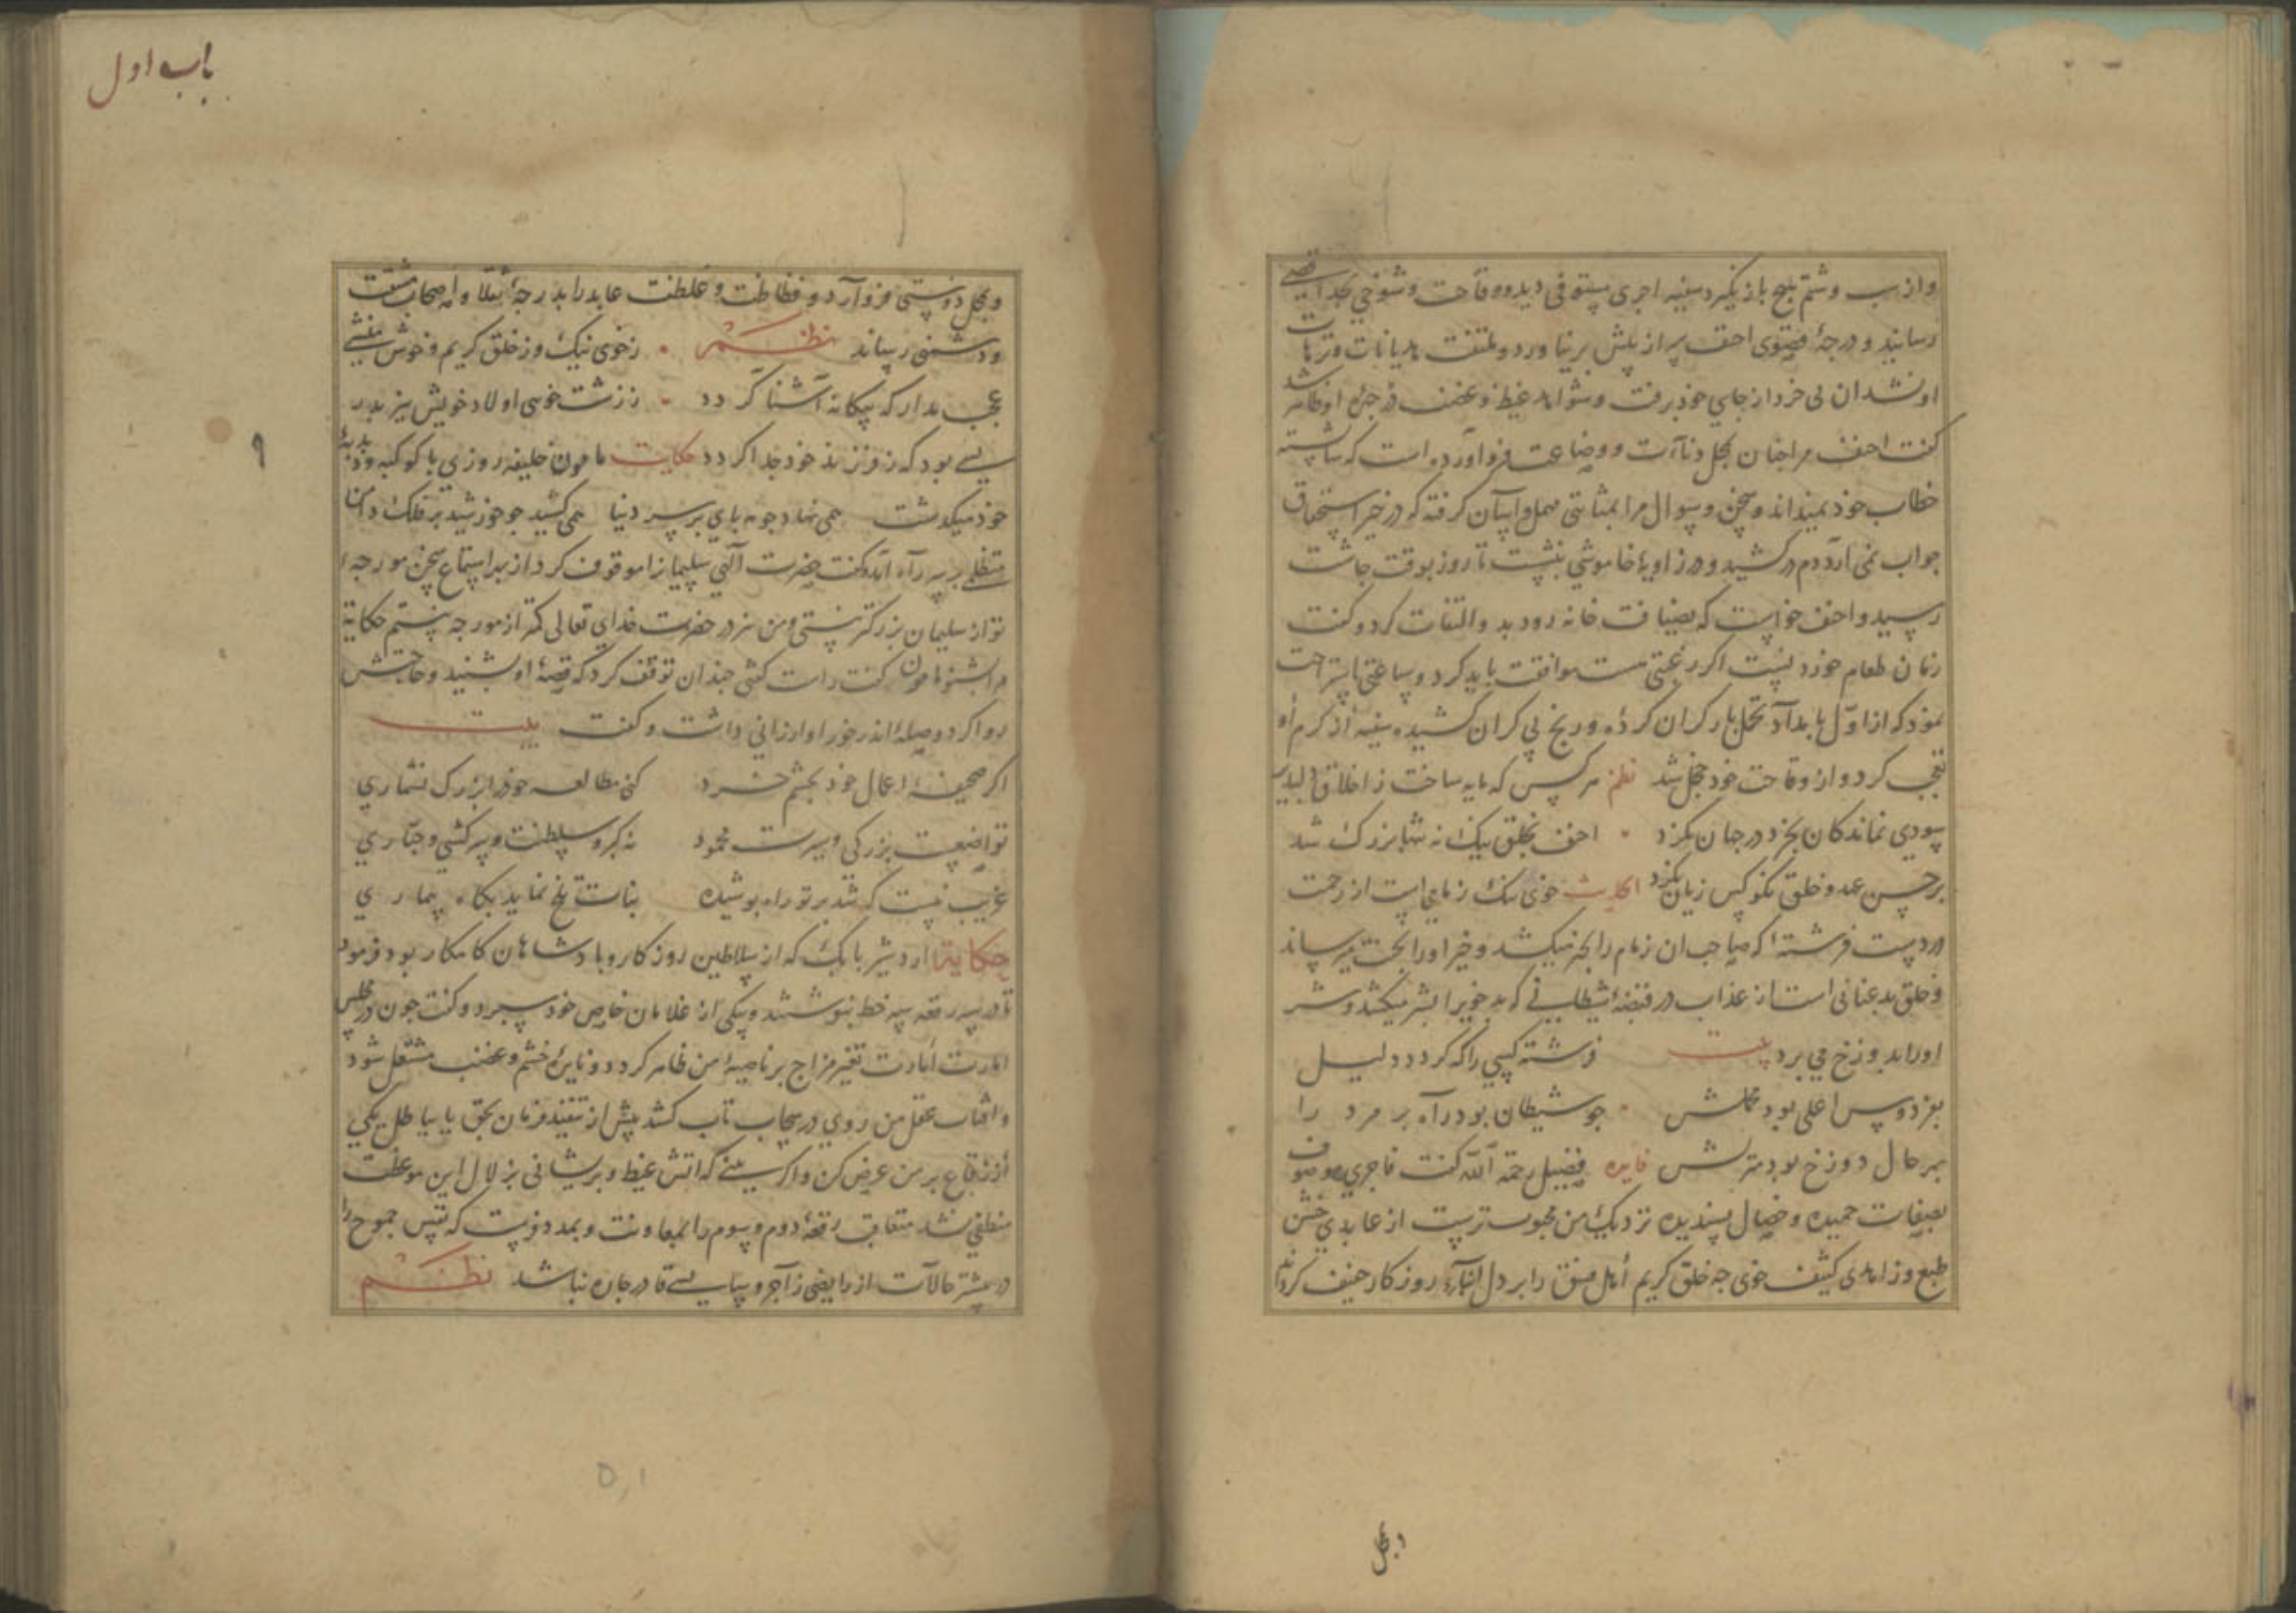 و از سب و شتم هیچ باز نگیرد سفیه اجری مستوفی دید و وقاحت و شوخی بحد اقصی
رسانید و درجهٔ قصوی احنف سر از پیش بر نیاورد و ملتفت هذیانات و ترهات
او نشد ان بی خرد از جای خود برفت و شواهد غیظ و غضب در چهرهٔ او ظاهر شد
کفت احنف مرا چنان بمحل دناآت و وضاعت فرو آورده است که شایسته
خطاب خود نمیداند و سخن و سوال مرا بمثابتی مهمل و آسان کرفته که در خیر استحقاق
جواب نمی آرد دم درکشید و در زاویهٔ خاموشی بنشست تا روز بوقت چاشت
رسید و احنف خواست که بضیافت خانه رود بدو التفات کرد و کفت
زمان طعام خوردنست اکر رغبتی هست موافقت باید کرد و ساعتی استراحت
نمود که از اول بامداد تحمل بار کران کرده و رنج بی کران کشیده سفیه از کرم او
تعجب کرد و از وقاحت خود خجل شد نظم هر کس که مایه ساخت ز اخلاق دلپذیر
سودی نماند کان بخرد در جهان نکرد احنف بخلق نیک نه تنها بزرک شد
بر حسن عهد و خلق نکو کس زیان نکرد خوی نیک زمامی است از رحمت
در دست فرشته که صاحب ان زمام را بخیر میکشد و خیر او را بجنت میرساند
و خلق بد عنانی است از عذاب در قبضهٔ شیطانی که بدخوی را بشر میکشد و شر
او را بدوزخ می برد بیت فرشته کسی را که کردد دلیل
بفردوس اعلی بود محملش چو شیطان بود رآه بر مرد را
بهر حال دوزخ بود منزلش فایده فضیل رحمة الله کفت فاجری موصوف
بصفات حمیده و خصال پسندیده نزدیک من محبوب ترست از عابدی خشن
طبع و زاهدی کثیف خوی چه خلق کریم اهل فسق را بر دل روزکار خفیف کرداند
و بمحل
باب اول
و بمحل دوستی فرو آرد و فظاظت و غلظت عابد را بدرجهٔ ثقلا و اصحاب مشقت
و دشمنی رساند نظم ز خوی نیک و ز خلق کریم و خوش منشی
عجب مدار که بیکانه آشنا کردد ز زشت خویی اولاد خویش نیز پدر
بسی بود که ز فرزند خود جدا کردد حکایت مامون خلیفه روزی با کوکبه و دبدبهٔ
خود میکذشت همی نهاد چو مه پای بر سر دنیا همی کشید چو خورشید بر فلک دامن
متظلمی بر سر رآه آمد و کفت حضرت الهی سلیمان را موقوف کرد از بهر استماع سخن مورچه
تو از سلیمان بزرکتر نیستی و من نیز در حضرت خدای تعالی کمتر از مورچه نیستم حکایة
مرا بشنو مامون کفت راست کفتی چندان توقف کرد که قصهٔ او بشنید و حاجتش
روا کرد و صلهٔ اندر خور او ارزانی داشت و کفت بیت
اکر صحیفهٔ اعمال خود بچشم خرد کنی مطالعه خود را بزرک نشماری
تواضعست بزرکی و سیرت محمود نه کبر و سلطنت و سرکشی و جباری
غریب نیست که شد بر تو راه پوشیده نبات تلخ نماید بکاه بیماری
حکایة اردشیر بابک که از سلاطین روزکار و پادشاهان کامکار بود فرمود
تا در سه رقعه سه خط بنوشتند و بیکی از غلامان خاص خود سپرد و کفت چون در مجلس
امارت أمارت تغیر مزاج بر ناصیهٔ من ظاهر کردد و نایرهٔ خشم و غضب مشتعل شود
و افتاب عقل من روی در سحاب تاب کشد پیش از تنفیذ فرمان بحق یا بباطل یکی
از رقاع بر من عرض کن و اکر بینی که اتش غیظ و پریشانی بزلال این موعظت
منطفی نشد متعاقب رقعهٔ دوم و سوم را بمعاونت و بمدد فرست که نفس جموح را
در بیشتر حالآت از رایضی زاجر و سایسی قادر چاره نباشد نظم
۹